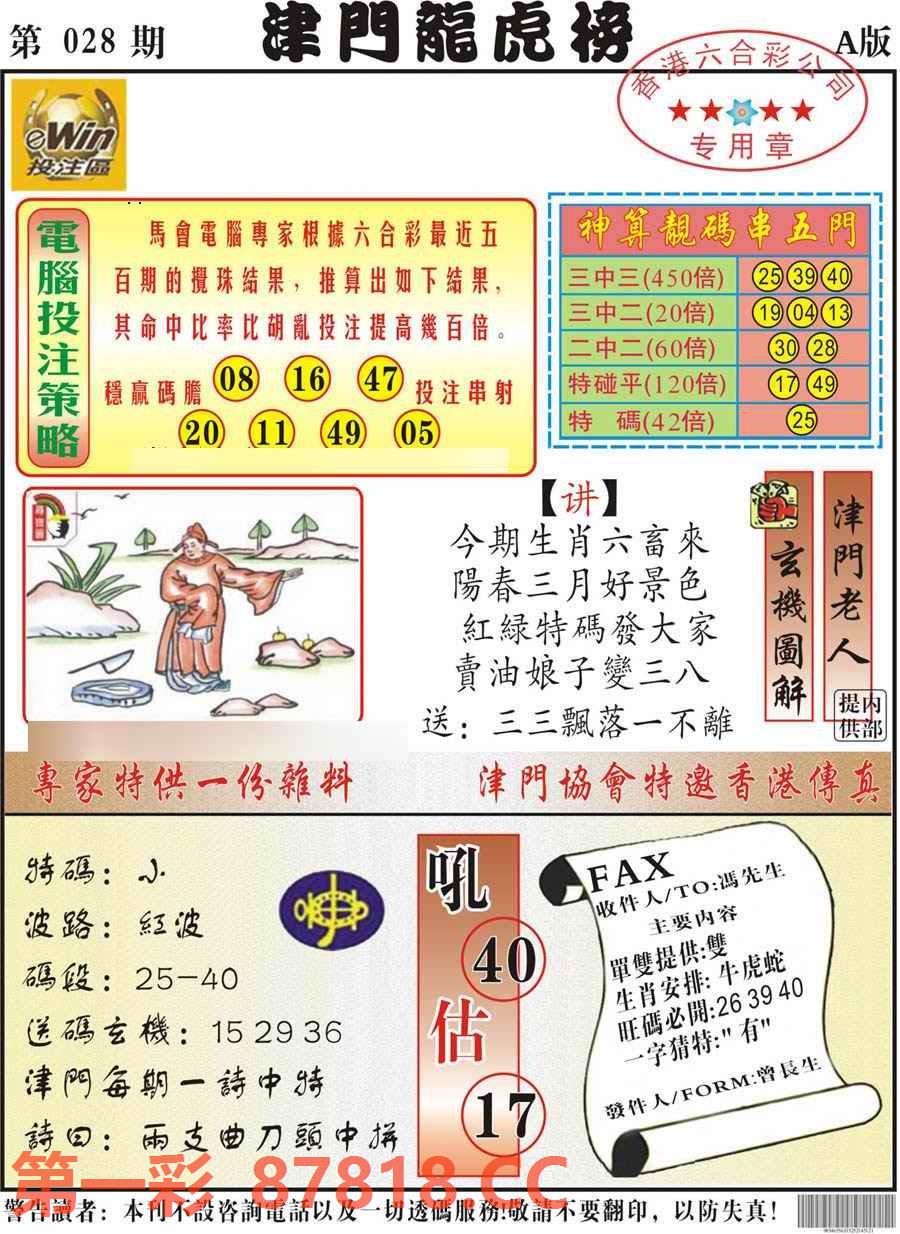 第 028 期
津門龍虎榜
A版
香港六合彩公司
专用章
eWin
投注區
電腦投注策略
馬會電腦專家根據六合彩最近五
百期的攪珠結果，推算出如下結果，
其命中比率比胡亂投注提高幾百倍。
穩贏碼膽 08 16 47 投注串射
20 11 49 05
神算靚碼串五門
三中三(450倍) 25 39 40
三中二(20倍) 19 04 13
二中二(60倍) 30 28
特碰平(120倍) 17 49
特 碼(42倍) 25
【讲】
今期生肖六畜來
陽春三月好景色
紅緑特碼發大家
賣油娘子變三八
送：三三飄落一不離
玄機圖解
津門老人
内部提供
專家特供一份雜料
津門協會特邀香港傳真
特碼：小
波路：紅波
碼段：25-40
送碼玄機：15 29 36
津門每期一詩中特
詩曰：兩支曲刀頭中拼
吼
40
估
17
FAX
收件人/TO:馮先生
主要内容
單雙提供:雙
生肖安排: 牛虎蛇
旺碼必開:26 39 40
一字猜特:"有"
發件人/FORM:曾長生
第一彩 87818.CC
警告讀者：本刊不設咨詢電話以及一切透碼服務!敬請不要翻印，以防失真!